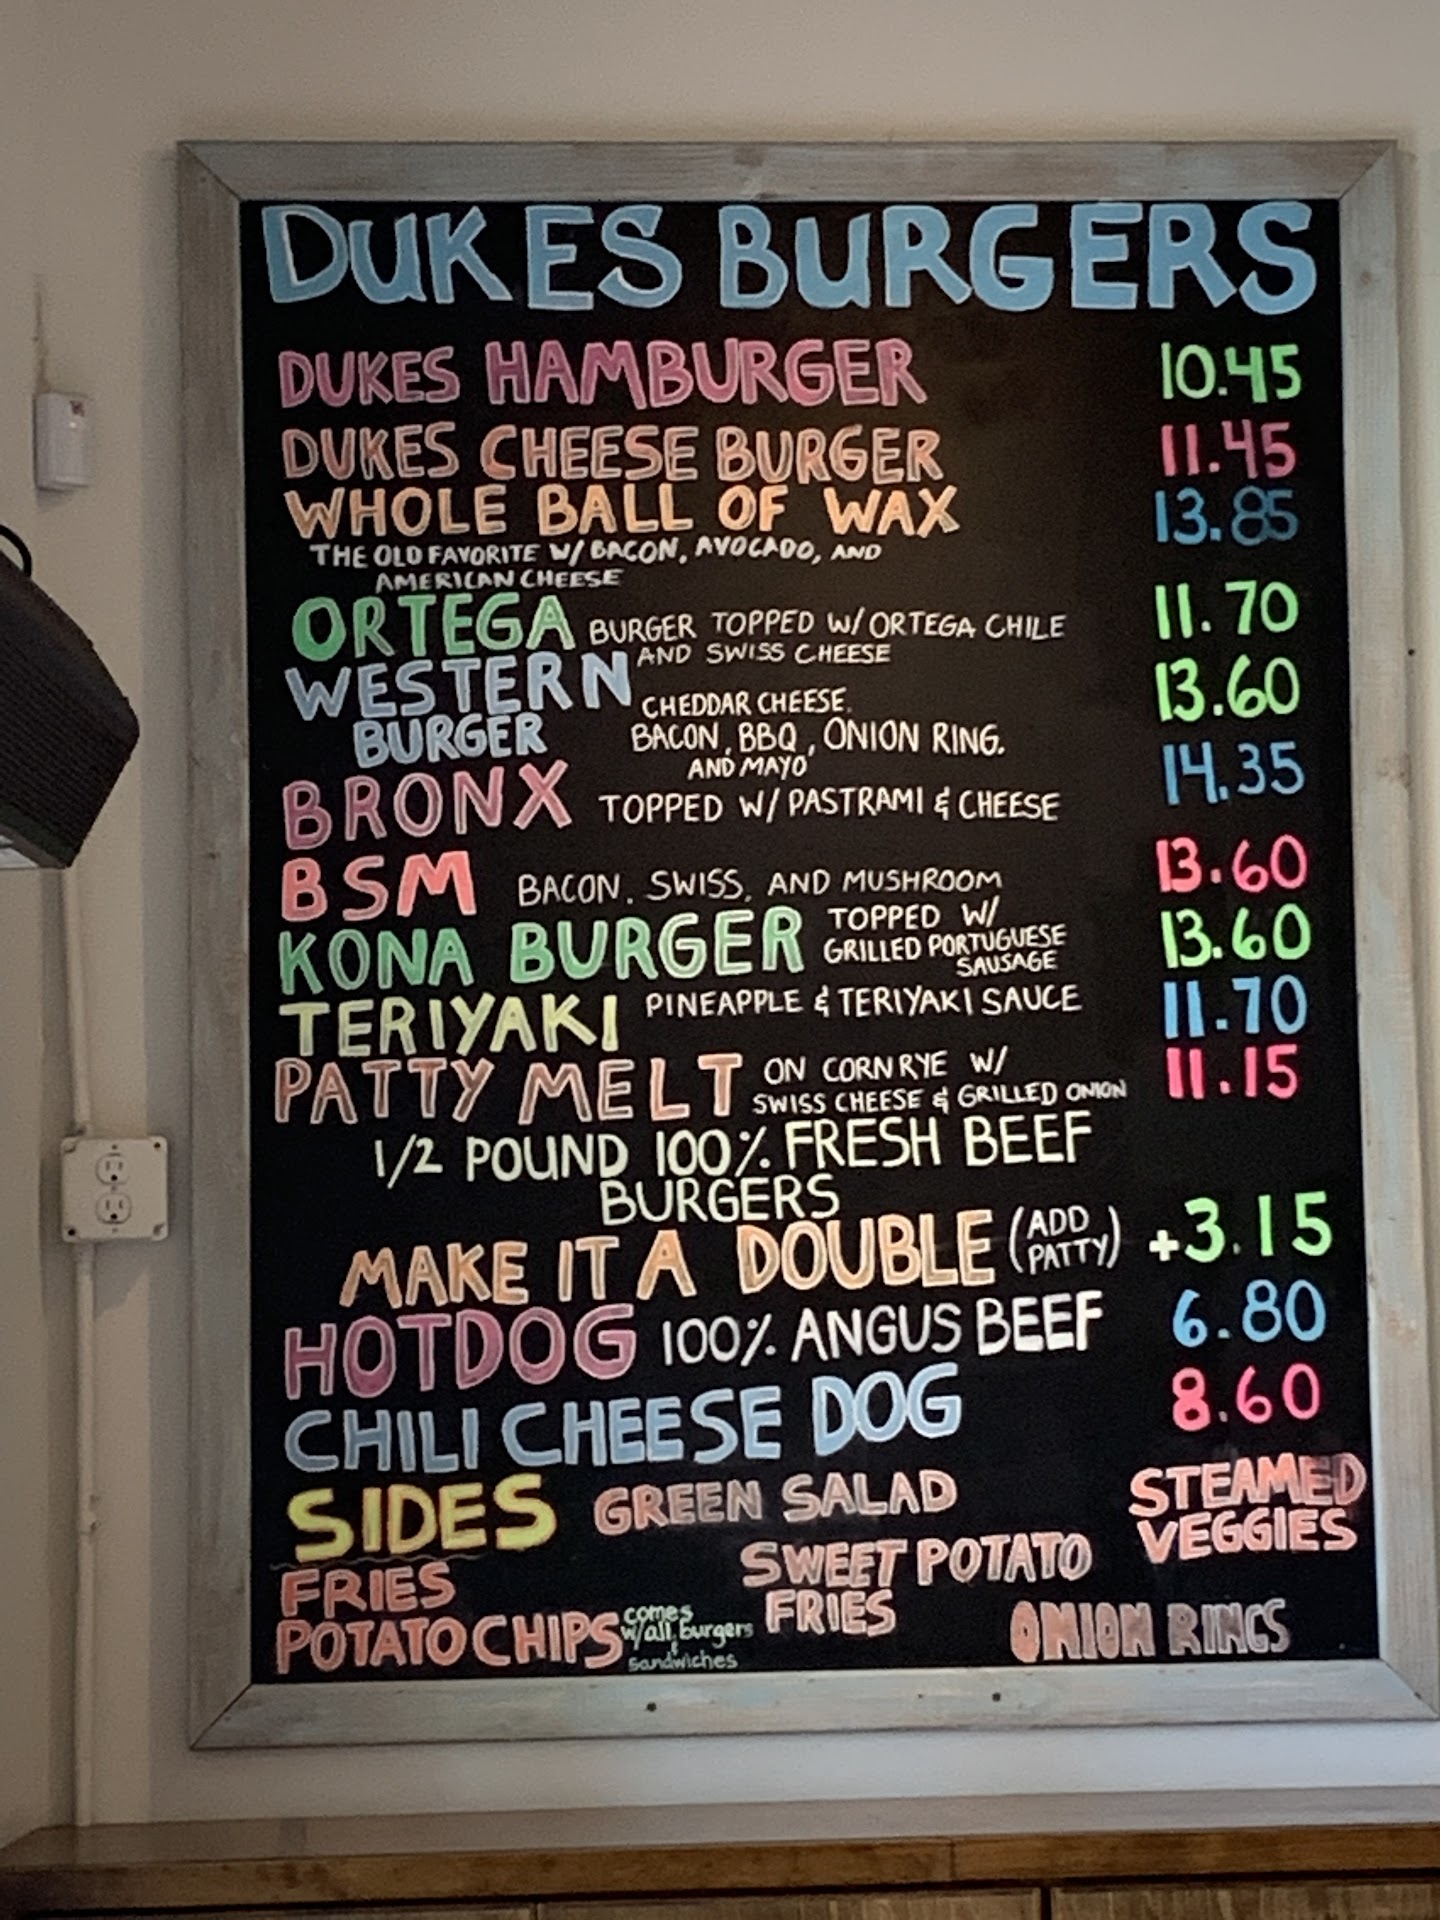 DUKES BURGERS
DUKES HAMBURGER 10.45
DUKES CHEESE BURGER 11.45
WHOLE BALL OF WAX 13.85
THE OLD FAVORITE W/ BACON, AVOCADO, AND
AMERICAN CHEESE
ORTEGA BURGER TOPPED W/ ORTEGA CHILE 11.70
AND SWISS CHEESE
WESTERN CHEDDAR CHEESE, 13.60
BURGER BACON, BBQ, ONION RING,
AND MAYO
BRONX TOPPED W/ PASTRAMI & CHEESE 14.35
BSM BACON, SWISS, AND MUSHROOM 13.60
KONA BURGER TOPPED W/ 13.60
GRILLED PORTUGUESE
SAUSAGE
TERIYAKI PINEAPPLE & TERIYAKI SAUCE 11.70
PATTY MELT ON CORN RYE W/ 11.15
SWISS CHEESE & GRILLED ONION
1/2 POUND 100% FRESH BEEF
BURGERS
MAKE IT A DOUBLE (ADD PATTY) +3.15
HOTDOG 100% ANGUS BEEF 6.80
CHILI CHEESE DOG 8.60
SIDES GREEN SALAD STEAMED
VEGGIES
FRIES SWEET POTATO
FRIES
POTATO CHIPS comes
w/all burgers
&
sandwiches
ONION RINGS